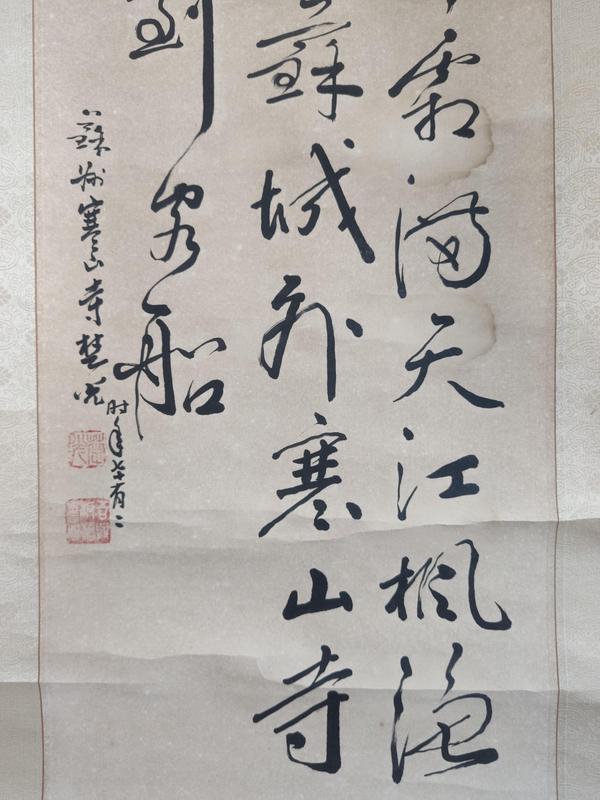 霜滿天江枫渔
蘇城外寒山寺
到客船
蘇州寒山寺楚光
时年七十有二